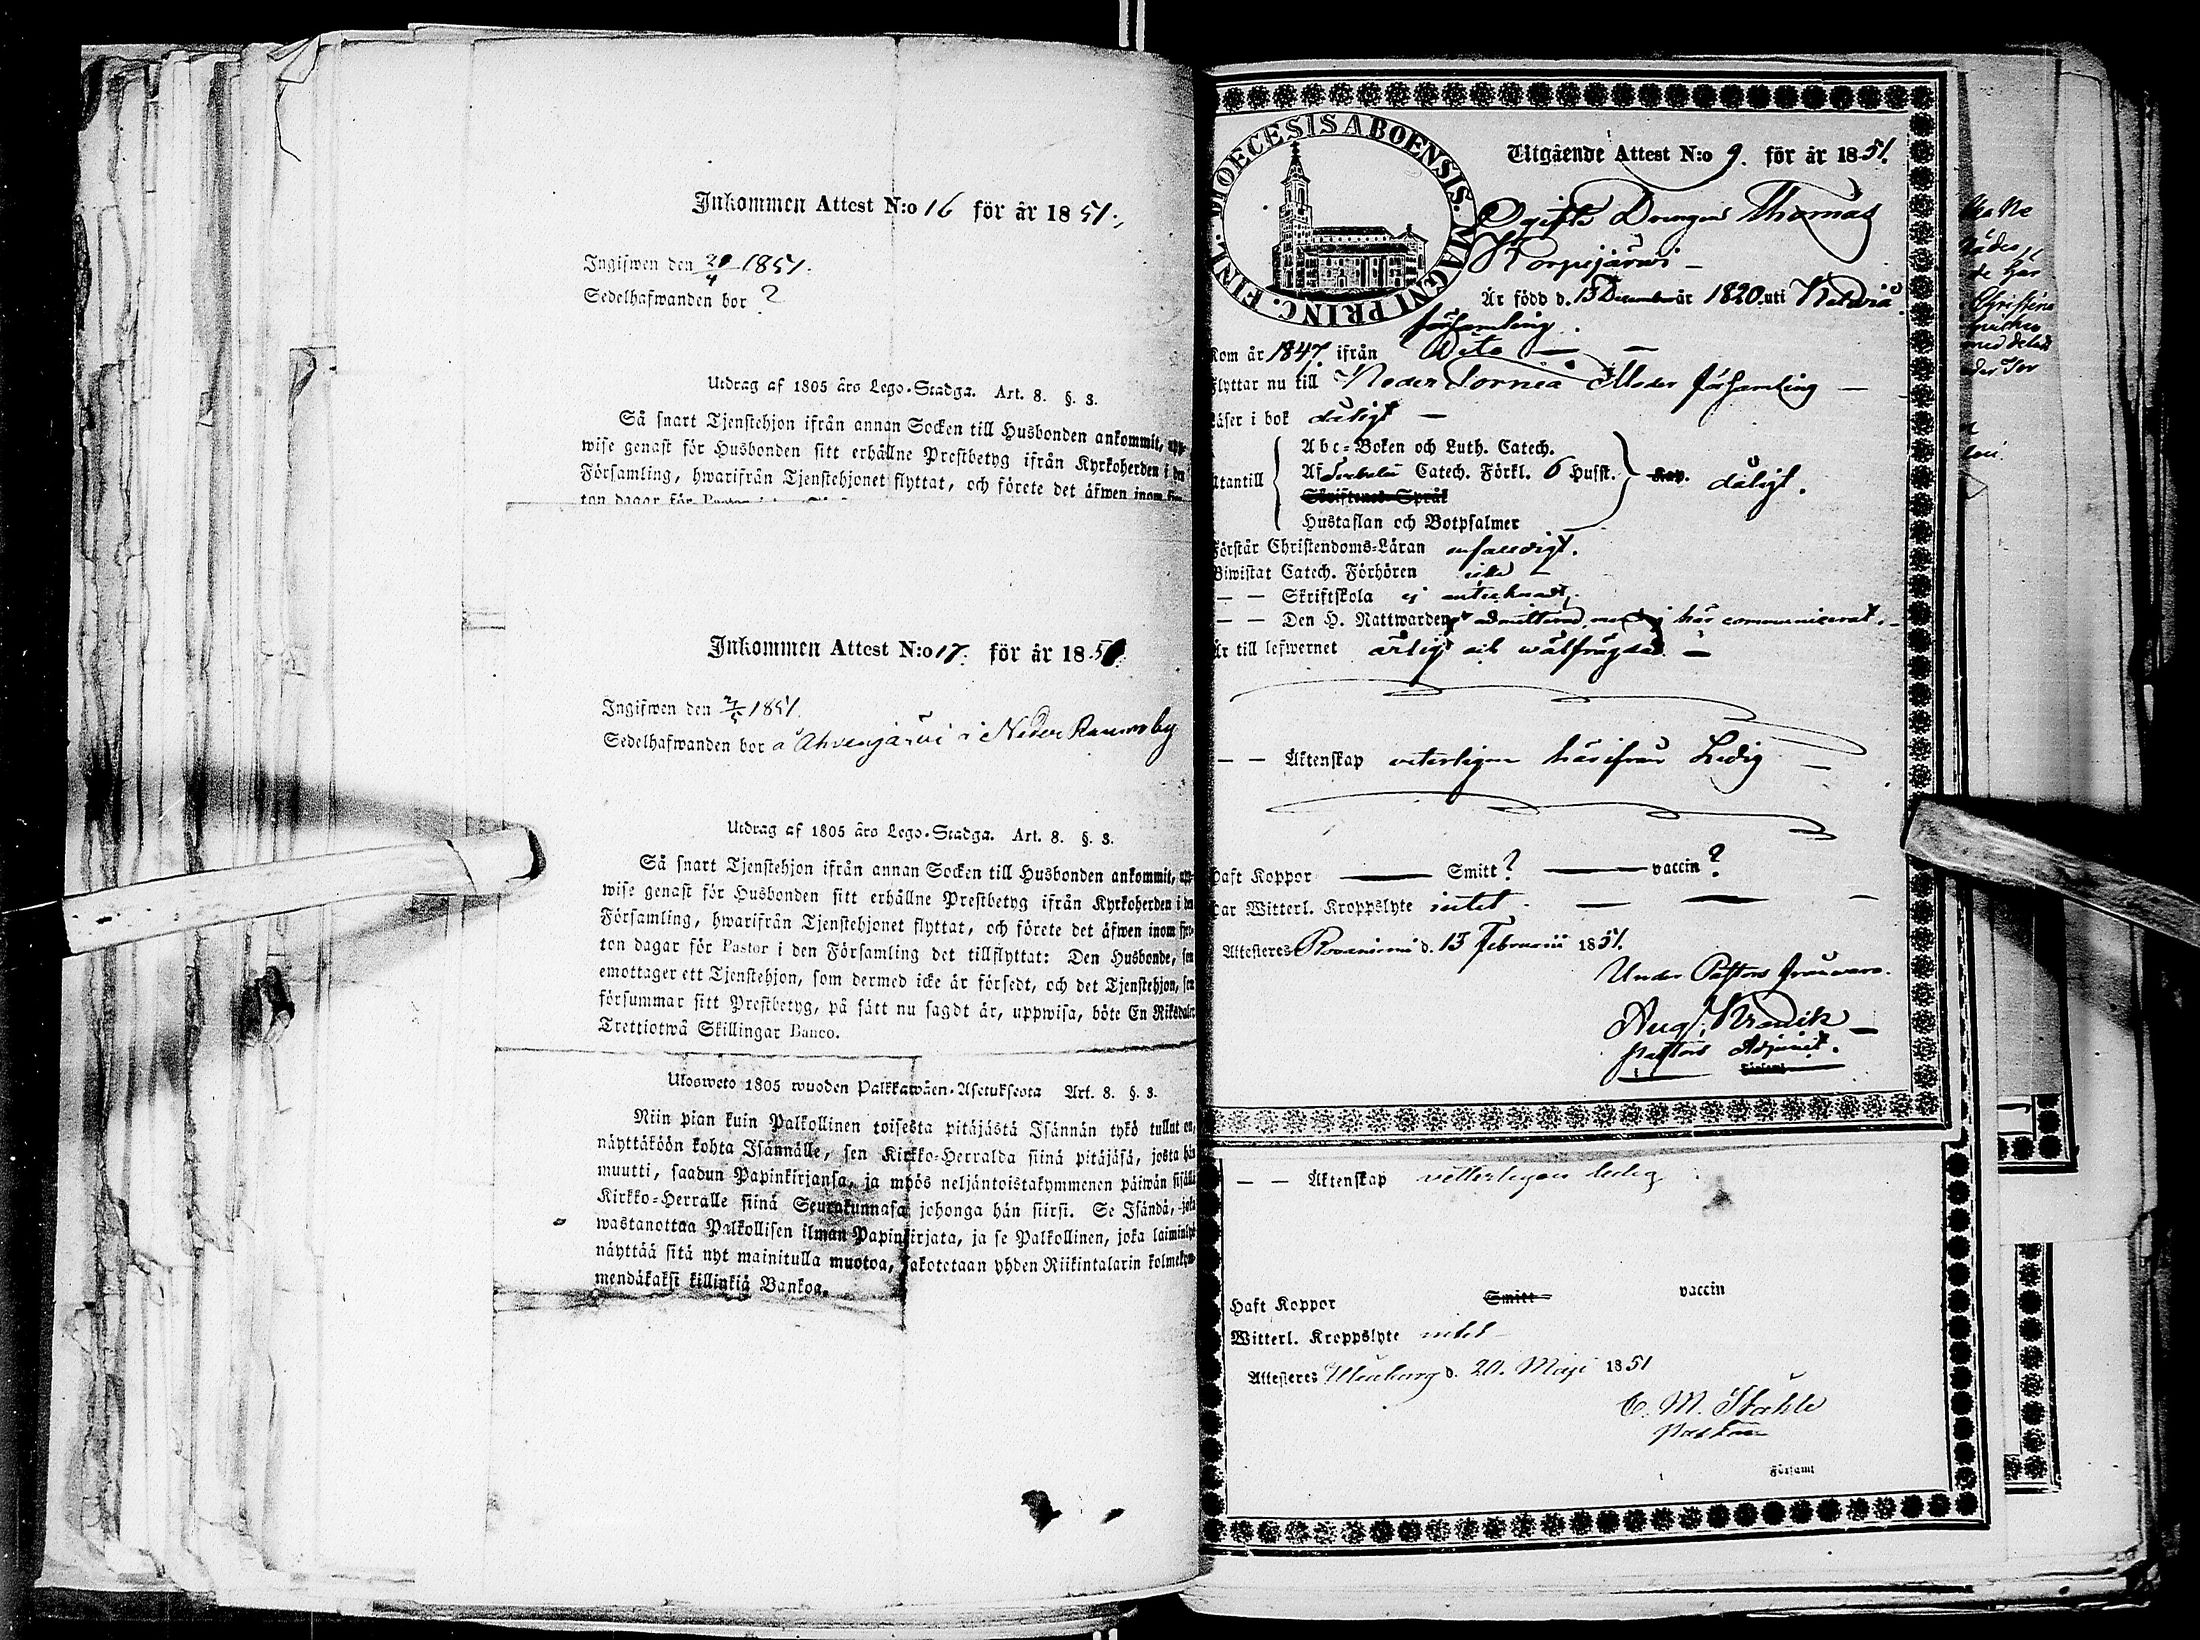 Inkommen Attest N:o 16 för år 1851.
Ingifwen den 20/4 1851.
Sedelhafwanden bor ?
Utdrag af 1805 års Lego-Stadga. Art. 8. §. 3.
Så snart Tjenstehjon ifrån annan Socken till Husbonden ankommit, upp-
wise genast för Husbonden sitt erhållne Prestbetyg ifrån Kyrkoherden i den
Församling, hwarifrån Tjenstehjonet flyttat, och förete det äfwen inom
ton dagar för Pastor i
Inkommen Attest N:o 17. för år 1851.
Ingifwen den 2/5 1851.
Sedelhafwanden bor å Ahvenjärvi i Neder Raumoby
Utdrag af 1805 års Lego-Stadga. Art. 8. §. 3.
Så snart Tjenstehjon ifrån annan Socken till Husbonden ankommit, upp-
wise genast för Husbonden sitt erhållne Prestbetyg ifrån Kyrkoherden i den
Församling, hwarifrån Tjenstehjonet flyttat, och förete det äfwen inom fjor-
ton dagar för Pastor i den Församling det tillflyttat: Den Husbonde, som
emottager ett Tjenstehjon, som dermed icke är försedt, och det Tjenstehjon, som
försummar sitt Prestbetyg, på sätt nu sagdt är, uppwisa, böte En Riksdaler
Trettiotwå Skillingar Banco.
Ulosweto 1805 wuoden Palkkawäen-Asetuksesta Art. 8. §. 3.
Niin pian kuin Palkollinen toisesta pitäjästä Isännän tykö tullut on,
näyttäköön kohta Isännälle, sen Kirkko-Herralda siinä pitäjäsä, josta hän
muutti, saadun Papinkirjansa, ja myös neljäntoistakymmenen päiwän sisällä
Kirkko-Herralle siinä Seurakunnasa johonga hän siirsi. Se Isändä, joka
wastanottaa Palkollisen ilman Papinkirjata, ja se Palkollinen, joka laiminlyö
näyttää sitä nyt mainitulla muotoa, sakotetaan yhden Riikintalarin kolmekym-
mendäkaksi killinkiä Bankoa.
FINL. DIOECESIS ABOENSIS. MAGNI PRINC.
Utgående Attest N:o 9. för år 1851.
Ogifte Drengen Thomas
Korpijärwi —
Är född d. 13 December år 1820. uti Kalwiå
församling.
Kom år 1847. ifrån Dito — —
Flyttar nu till Neder Torneå Moder församling —
Läser i bok dåligt —
Utantill
Abc-Boken och Luth. Catech.
Af Catech. Förkl. 6 Hufst.
Skriftenes Språk
Hustaflan och Botpsalmer
Kap. dåligt.
Förstår Christendoms-Läran enfaldigt.
Biwistat Catech. Förhören icke —
— — Skriftskola ej antecknadt.
— — Den H. Nattwarden admitterad, men ej här communicerat. —
Är till lefwernet ärlig och wälfrägdad. —
— — Äktenskap veterligen härifrån Ledig —
Haft Koppor — Smitt ? — vaccin ?
Har Witterl. Kroppslyte intet — — —
Attesteres Rovaniemi d. 13 Februarii 1851.
Under Pastors frånvaro.
Aug. Kranck —
Pastors Adjunct.
Församl
— — Äktenskap vetterligen ledig
Haft Koppor Smitt vaccin
Witterl. Kroppslyte intet —
Attesteres Uleåborg d. 20. Maji 1851
C. M. Ståhle
Pastor
Församl